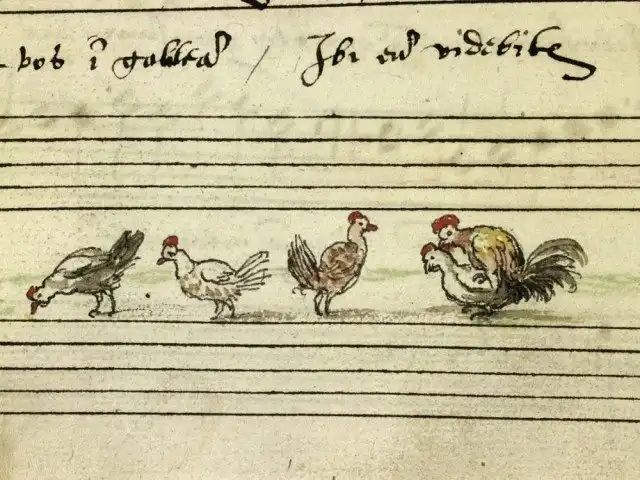 vos ī galleā / Ibi eū videbitꝭ